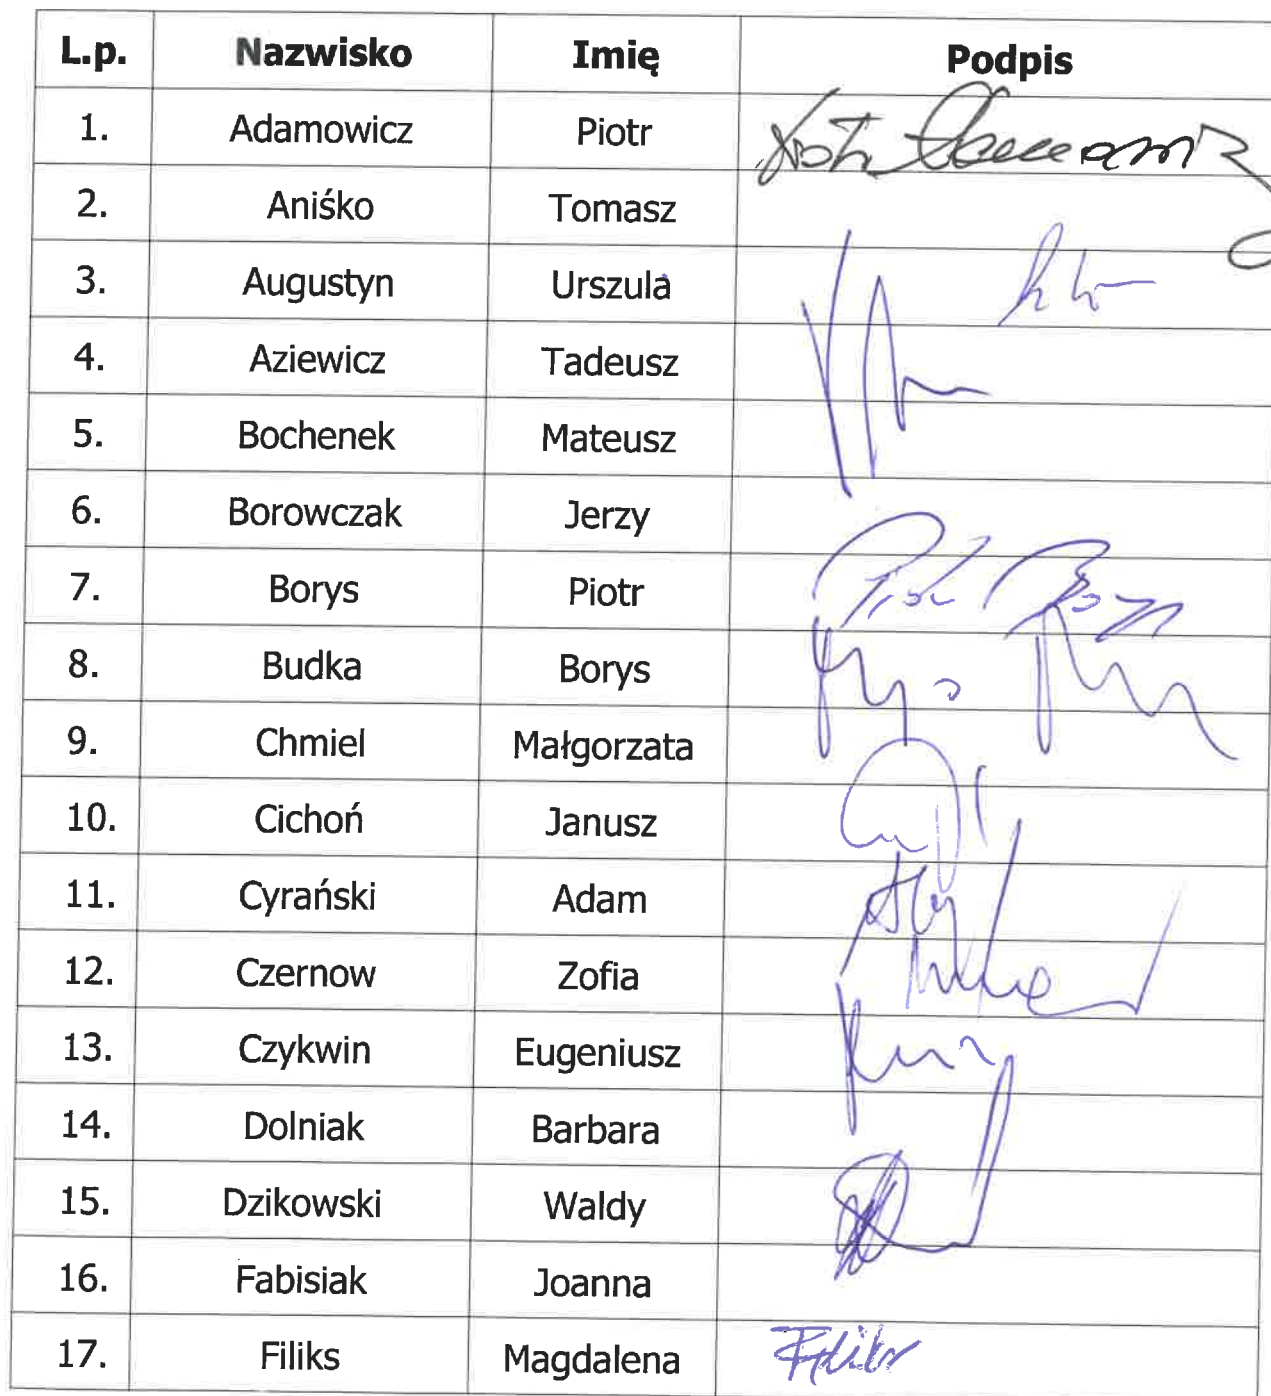 L.p. Nazwisko Imię Podpis
1. Adamowicz Piotr Piotr Adamowicz
2. Aniśko Tomasz
3. Augustyn Urszula
4. Aziewicz Tadeusz
5. Bochenek Mateusz
6. Borowczak Jerzy
7. Borys Piotr Piotr Borys
8. Budka Borys
9. Chmiel Małgorzata
10. Cichoń Janusz
11. Cyrański Adam
12. Czernow Zofia
13. Czykwin Eugeniusz
14. Dolniak Barbara
15. Dzikowski Waldy
16. Fabisiak Joanna
17. Filiks Magdalena Filiks